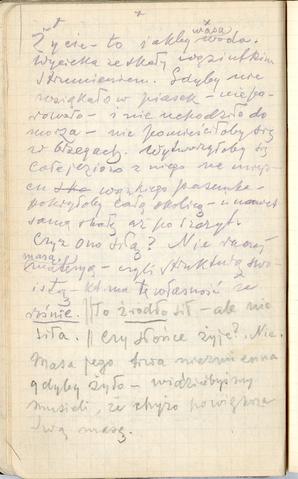 *
Życie – to jakby wąska woda.
Wycieka ze skały wąziutkim
strumieniem. Gdyby nie
wsiąkało w piasek – nie pa-
rowało – i nie uchodziło do
morza – nie pomieściłoby się
w brzegach. Wytworzyłoby się
całe jezioro z niego na miejs-
cu wąskiego pasemka –
pokryłoby całą okolicę – i nawet
samą skałę aż po szczyt.
Czy ono siłą? Nie raczej
masą materyą – czyli strukturą swo-
istą – kt. ma tę własność że
rośnie. || To źródło sił – ale nie
siła. || Czy słońce żyje? Nie.
Masa jego trwa niezmienna
gdyby żyło – widzielibyśmy
musieli, że chyżo powiększa
swą masę.